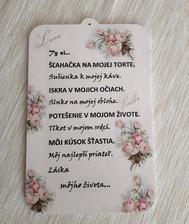 Ty si...
ŠĽAHAČKA NA MOJEJ TORTE.
Sušienka k mojej káve.
ISKRA V MOJICH OČIACH.
Slnko na mojej oblohe.
POTEŠENIE V MOJOM ŽIVOTE.
Tlkot v mojom srdci.
MÔJ KÚSOK ŠŤASTIA.
Môj najlepší priateľ.
Láska
môjho života...